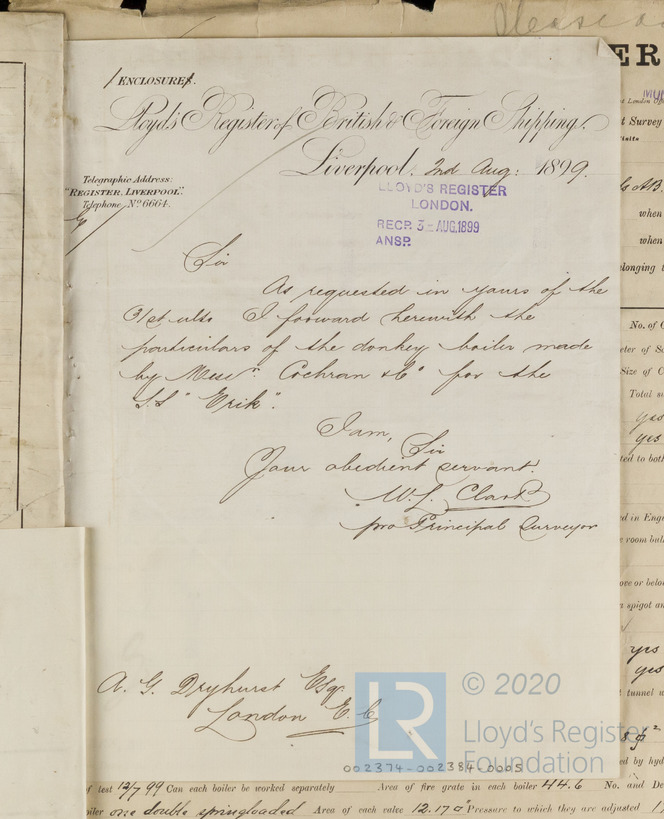 Please
ER
1 ENCLOSURE.
Lloyd's Register of British & Foreign Shipping.
Liverpool, 2nd Aug: 1899.
Telegraphic Address:
"REGISTER, LIVERPOOL".
Telephone Nº 6664.
LLOYD'S REGISTER
LONDON.
RECP. 3-AUG.1899
ANSP.
Sir
As requested in yours of the
31st ulto I forward herewith the
particulars of the donkey boiler made
by Messrs. Cochran & Co for the
S.S "Erik".
I am, Sir
Your obedient servant.
W. L. Clark
pro Principal Surveyor
A. G. Dryhurst Esq.
London E.C
LR
© 2020
Lloyd's Register
Foundation
002374-002384-0005
t Survey
when
when
longing t
No. of
Size of
Total
yes
yes
ted to both
room
ove or belo
spigot
yes
yes
tunnel
ed by hyd
of test 12/7 99 Can each boiler be worked separately Area of fire grate in each boiler 44.6 No. and De
one double springloaded Area of each valve 12.17 Pressure to which they are adjusted